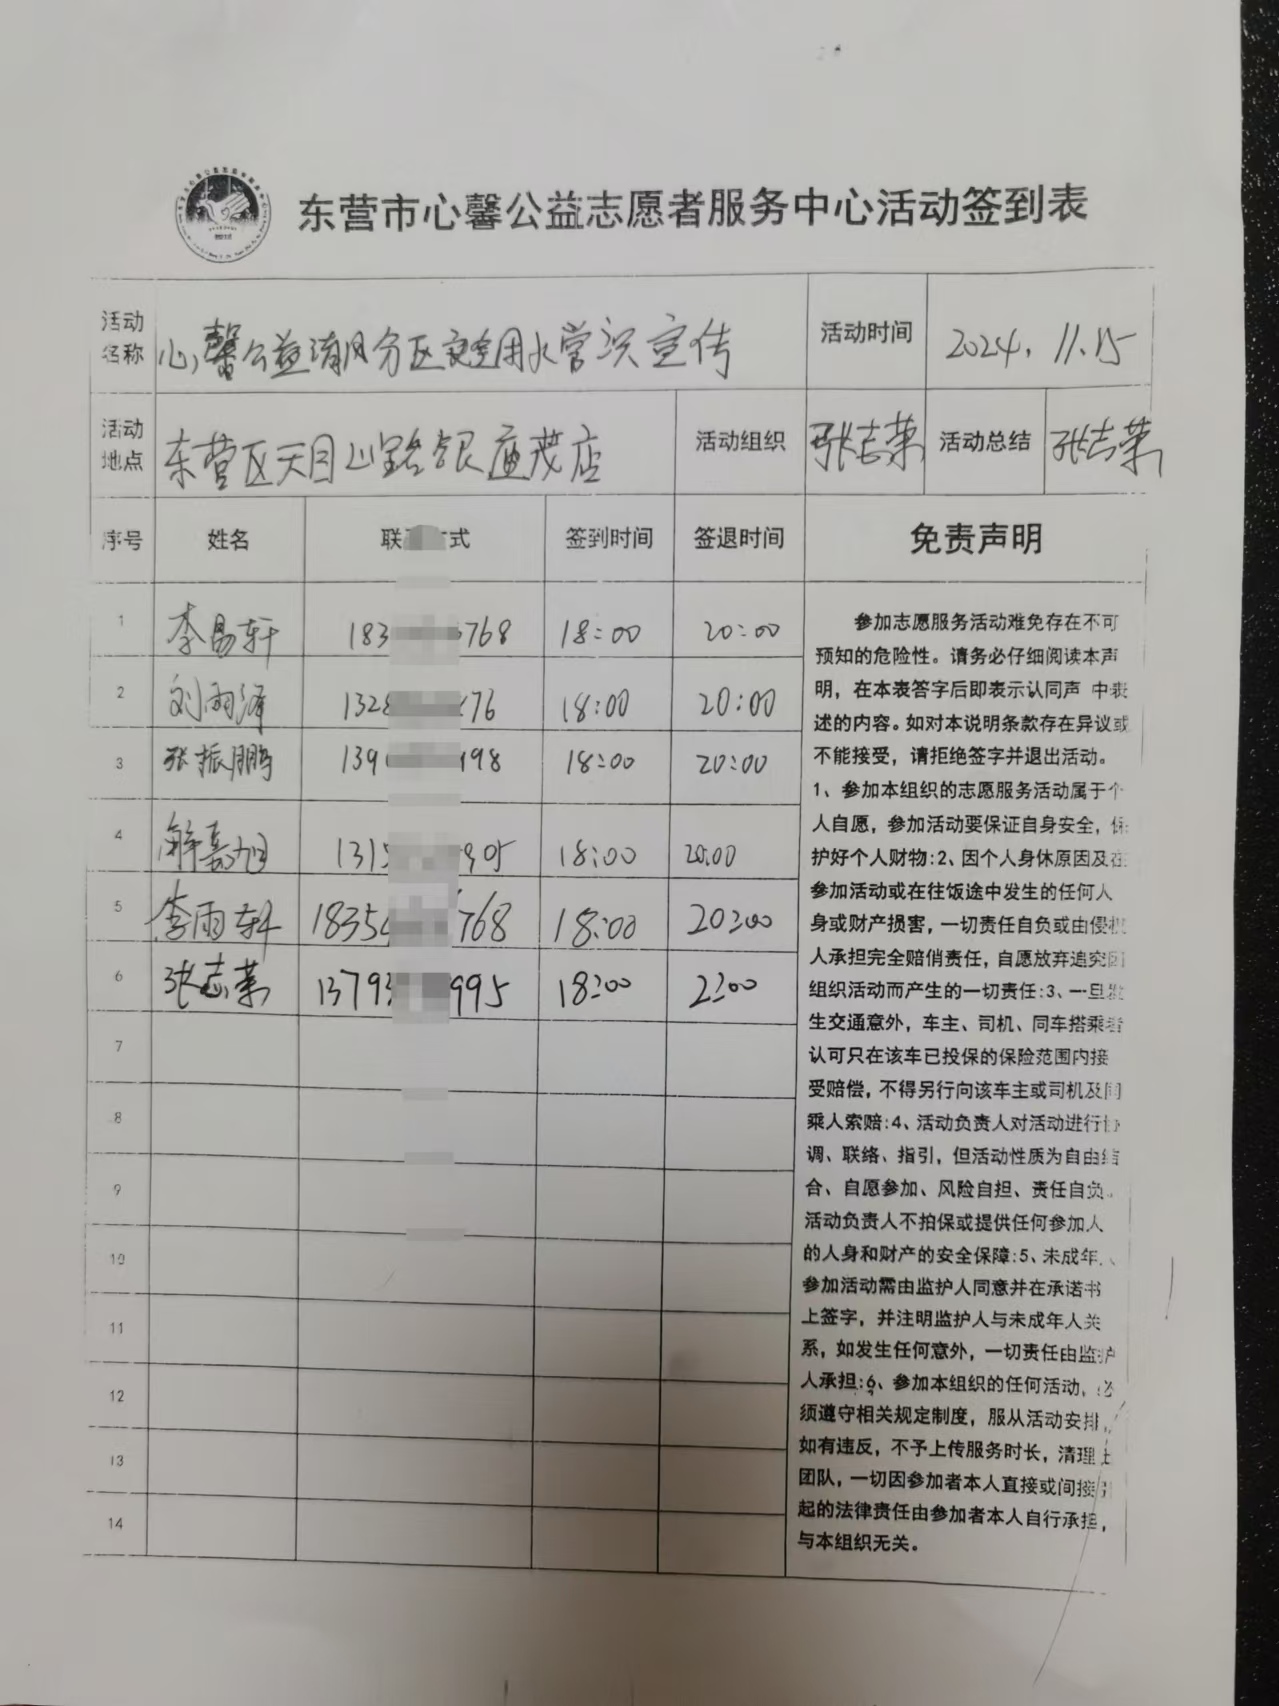 东营市心馨公益志愿者服务中心活动签到表
活动名称 心馨公益清风分区安全用水常识宣传 活动时间 2024.11.15
活动地点 东营区天目山路银座茂店 活动组织 张志荣 活动总结 张志荣
序号 姓名 联 式 签到时间 签退时间 免责声明
1 李易轩 183 768 18:00 20:00
2 刘雨泽 1328 76 18:00 20:00
3 张振鹏 139 998 18:00 20:00
4 解嘉旭 1315 905 18:00 20:00
5 李雨轩 1835 768 18:00 20:00
6 张志荣 1379 995 18:00 2:00
7
8
9
10
11
12
13
14
参加志愿服务活动难免存在不可
预知的危险性。请务必仔细阅读本声
明，在本表答字后即表示认同声 中表
述的内容。如对本说明条款存在异议或
不能接受，请拒绝签字并退出活动。
1、参加本组织的志愿服务活动属于个
人自愿，参加活动要保证自身安全，保
护好个人财物:2、因个人身休原因及在
参加活动或在往饭途中发生的任何人
身或财产损害，一切责任自负或由侵权
人承担完全赔俏责任，自愿放弃追究因
组织活动而产生的一切责任:3、一旦发
生交通意外，车主、司机、同车搭乘者
认可只在该车已投保的保险范围内接
受赔偿，不得另行向该车主或司机及同
乘人索赔:4、活动负责人对活动进行协
调、联络、指引，但活动性质为自由结
合、自愿参加、风险自担、责任自负。
活动负责人不拍保或提供任何参加人
的人身和财产的安全保障:5、未成年人
参加活动需由监护人同意并在承诺书
上签字，并注明监护人与未成年人关
系，如发生任何意外，一切责任由监护
人承担:6、参加本组织的任何活动，必
须遵守相关规定制度，服从活动安排，
如有违反，不予上传服务时长，清理出
团队，一切因参加者本人直接或间接引
起的法律责任由参加者本人自行承担，
与本组织无关。